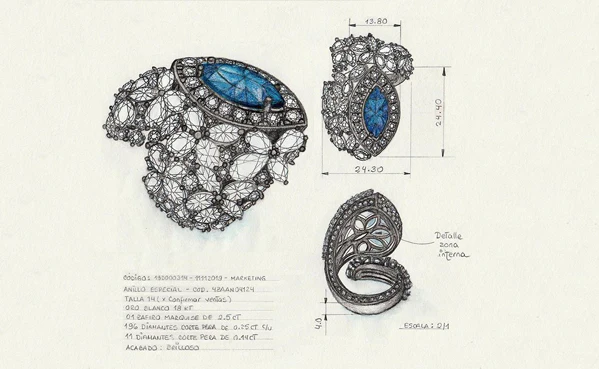 13.80
24.40
24.30
Detalle
zona
interna
4.0
ESCALA: 2/1
CODIGO: 130000214 - 01112019 - MARKETING
ANILLO ESPECIAL - COD.
TALLA 14 (x Confirmar ventas)
ORO BLANCO 18 KT
01 ZAFIRO MARQUISE DE 0.5CT
196 DIAMANTES CORTE PERA DE 0.25CT S/U
11 DIAMANTES CORTE PERA DE 0.14CT
ACABADO: BRILLOSO